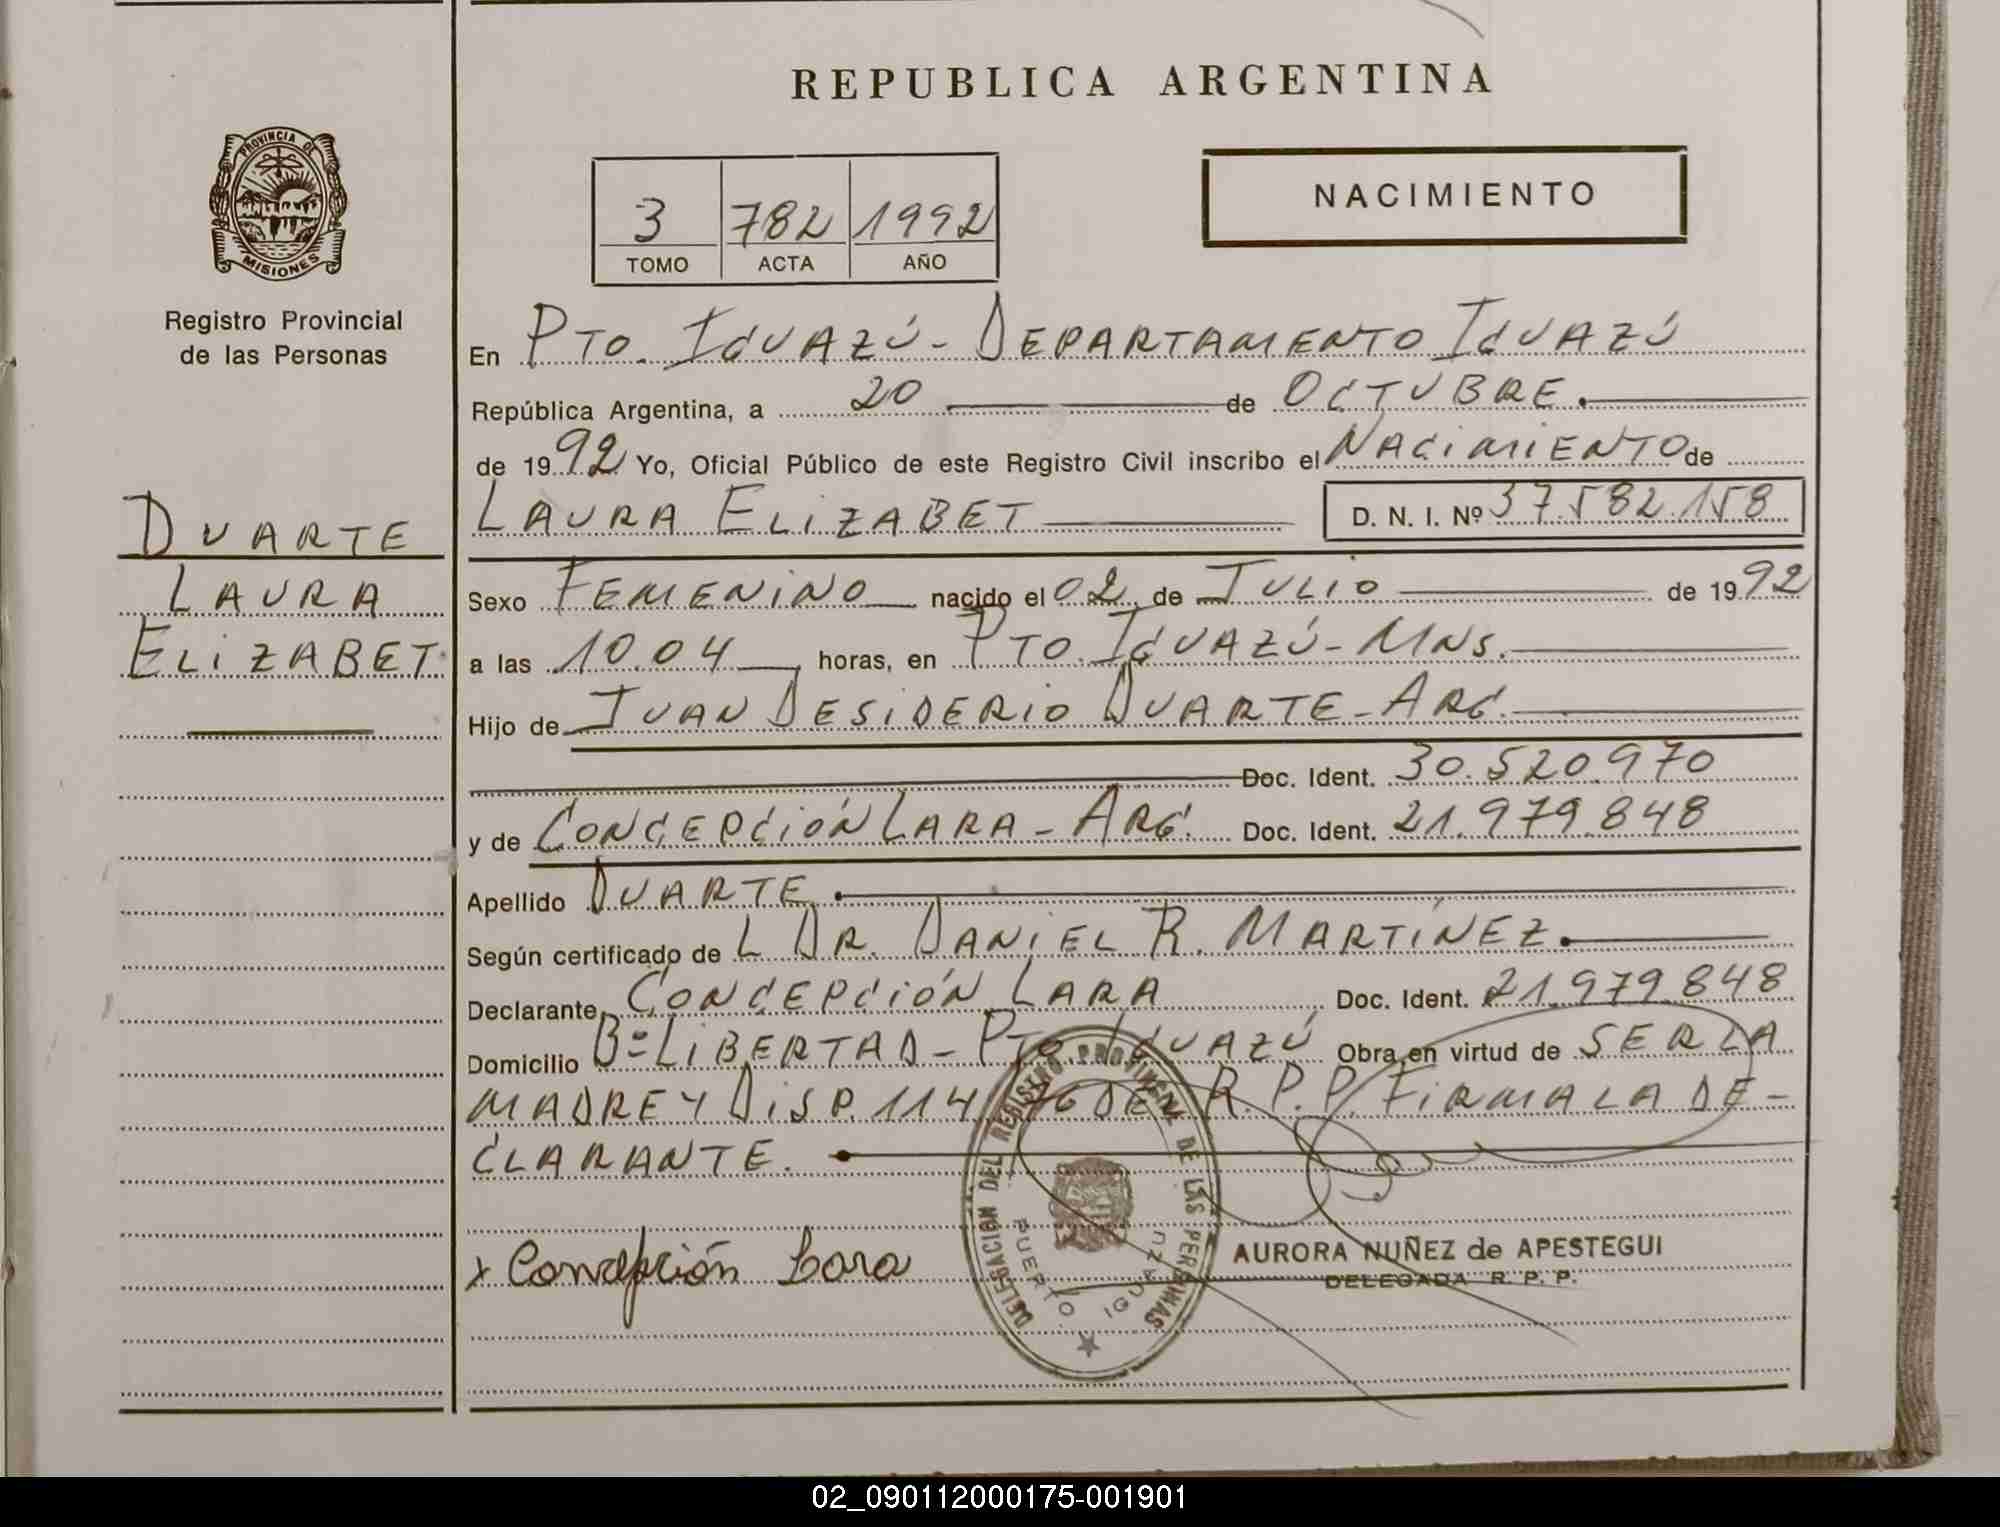 REPUBLICA ARGENTINA
PROVINCIA DE
MISIONES
Registro Provincial
de las Personas
3 782 1992
TOMO ACTA AÑO
NACIMIENTO
En PTO. IGUAZÚ - DEPARTAMENTO IGUAZÚ
República Argentina, a 20 de OCTUBRE.
de 1992 Yo, Oficial Público de este Registro Civil inscribo el NACIMIENTO de
LAURA ELIZABET D. N. I. Nº 37.582.158
DUARTE
LAURA
ELIZABET
Sexo FEMENINO nacido el 02 de JULIO de 1992
a las 10.04 horas, en PTO. IGUAZÚ - MNS.
Hijo de JUAN DESIDERIO DUARTE - ARG.
Doc. Ident. 30.520.970
y de CONCEPCIÓN LARA - ARG. Doc. Ident. 21.979.848
Apellido DUARTE.
Según certificado de L DR. DANIEL R. MARTÍNEZ.
Declarante CONCEPCIÓN LARA Doc. Ident. 21.979.848
Domicilio Bº LIBERTAD - PTO. IGUAZÚ Obra en virtud de SER LA
MADRE Y DISP. 114 DE R. P. P. FIRMA LA DE-
CLARANTE.
x Concepción Lara
DELEGACION DEL REGISTRO PROVINCIAL DE LAS PERSONAS
PUERTO IGUAZU
AURORA NUÑEZ de APESTEGUI
DELEGADA R. P. P.
02_090112000175-001901